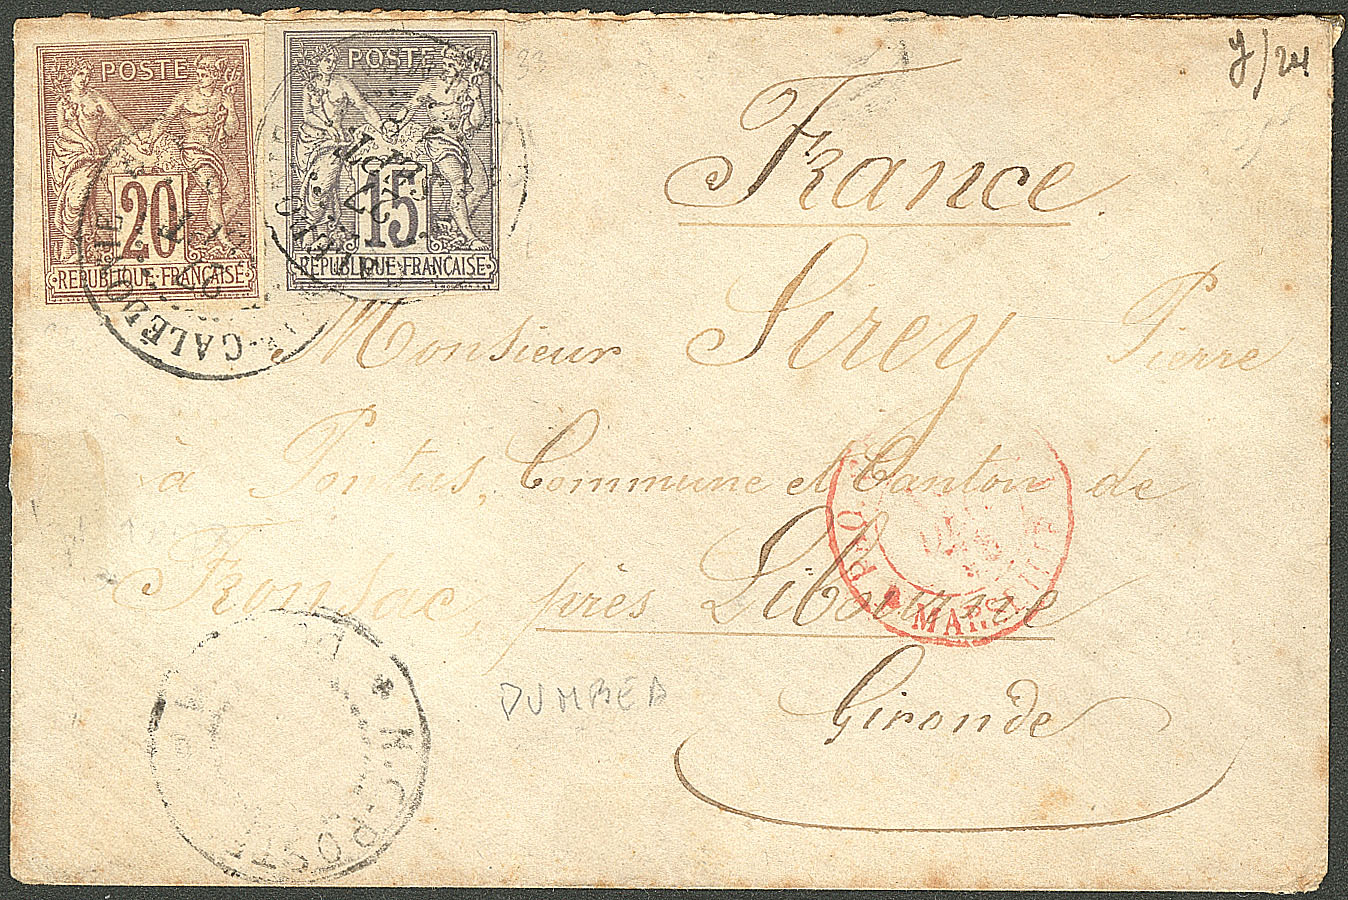 POSTE
20
REPUBLIQUE·FRANÇAISE
POSTE
15
REPUBLIQUE·FRANÇAISE
Nlle CALÉDONIE
SEPT
y/24
France.
Monsieur Sirey Pierre
à Pontus, Commune et Canton de
Fronsac, près Libourne
Gironde
MARSEILLE
DUMBEA
* N.C-POSTE